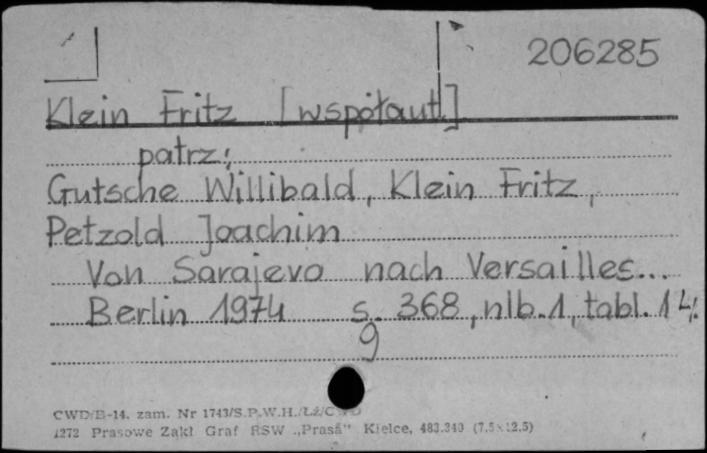 206285
Klein Fritz [współaut.]
patrz:
Gutsche Willibald, Klein Fritz,
Petzold Joachim
Von Sarajevo nach Versailles...
Berlin 1974 s. 368, nlb. 1, tabl. 14.
9
CWD/B-14. zam. Nr 1743/S.P.W.H./Łż/
1272 Prasowe Zakł Graf RSW „Prasa" Kielce, 483.340 (7.5x12.5)